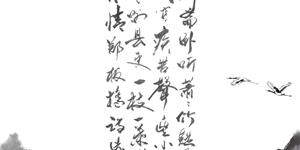 斋卧听萧萧竹疑
间疾苦聲些小
州县吏一枝一
情郑板桥诗